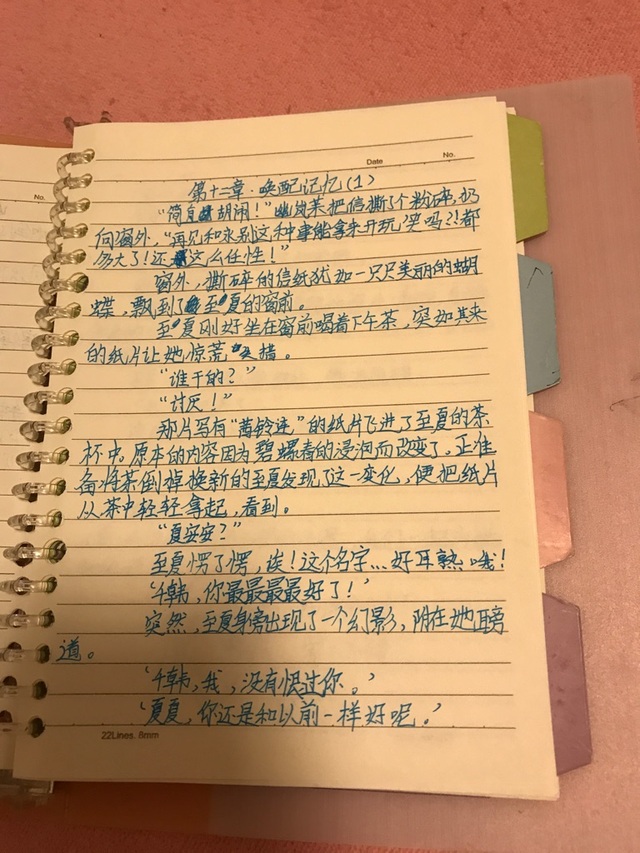 No.
Date
No.
第十二章·唤配记忆(1)
"简直胡闹!" 岚茉把信撕了个粉碎,扔
向窗外,"再见和永别这种事能拿来开玩笑吗?!都
多大了!还这么任性!"
窗外,撕碎的信纸犹如一只只美丽的蝴
蝶,飘到了至夏的窗前。
至夏刚好坐在窗前喝着下午茶,突如其来
的纸片让她惊荒失措。
"谁干的?"
"讨厌!"
那片写有"茜铃连"的纸片飞进了至夏的茶
杯中。原本的内容因为碧螺春的浸泡而改变了。正准
备将茶倒掉换新的至夏发现了这一变化,便把纸片
从茶中轻轻拿起,看到。
"夏安安?"
至夏愣了愣,诶!这个名字...好耳熟哦!
'千韩,你最最最最好了!'
突然,至夏身旁出现了一个幻影,附在她耳旁
道。
'千韩,我,没有恨过你。'
'夏夏,你还是和以前一样好呢。'
22Lines. 8mm